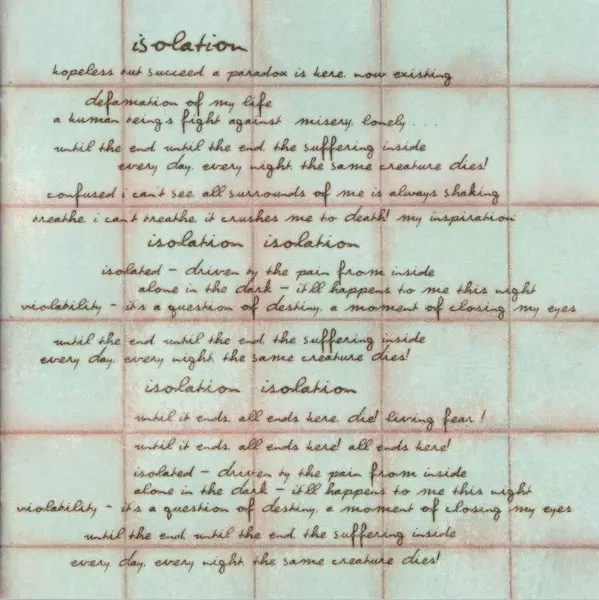 isolation
hopeless but succeed a paradox is here. now existing
defamation of my life
a human being's fight against misery. lonely...
until the end until the end. the suffering inside
every day. every night. the same creature dies!
confused i can't see. all surrounds of me is always shaking
breathe. i can't breathe. it crushes me to death! my inspiration
isolation isolation
isolated - driven by the pain from inside
alone in the dark - it'll happens to me this night
violability - it's a question of destiny. a moment of closing my eyes
until the end until the end. the suffering inside
every day. every night. the same creature dies!
isolation isolation
until it ends. all ends here. die! living fear!
until it ends. all ends here! all ends here!
isolated - driven by the pain from inside
alone in the dark - it'll happens to me this night
violability - it's a question of destiny. a moment of closing my eyes
until the end until the end. the suffering inside
every day. every night. the same creature dies!